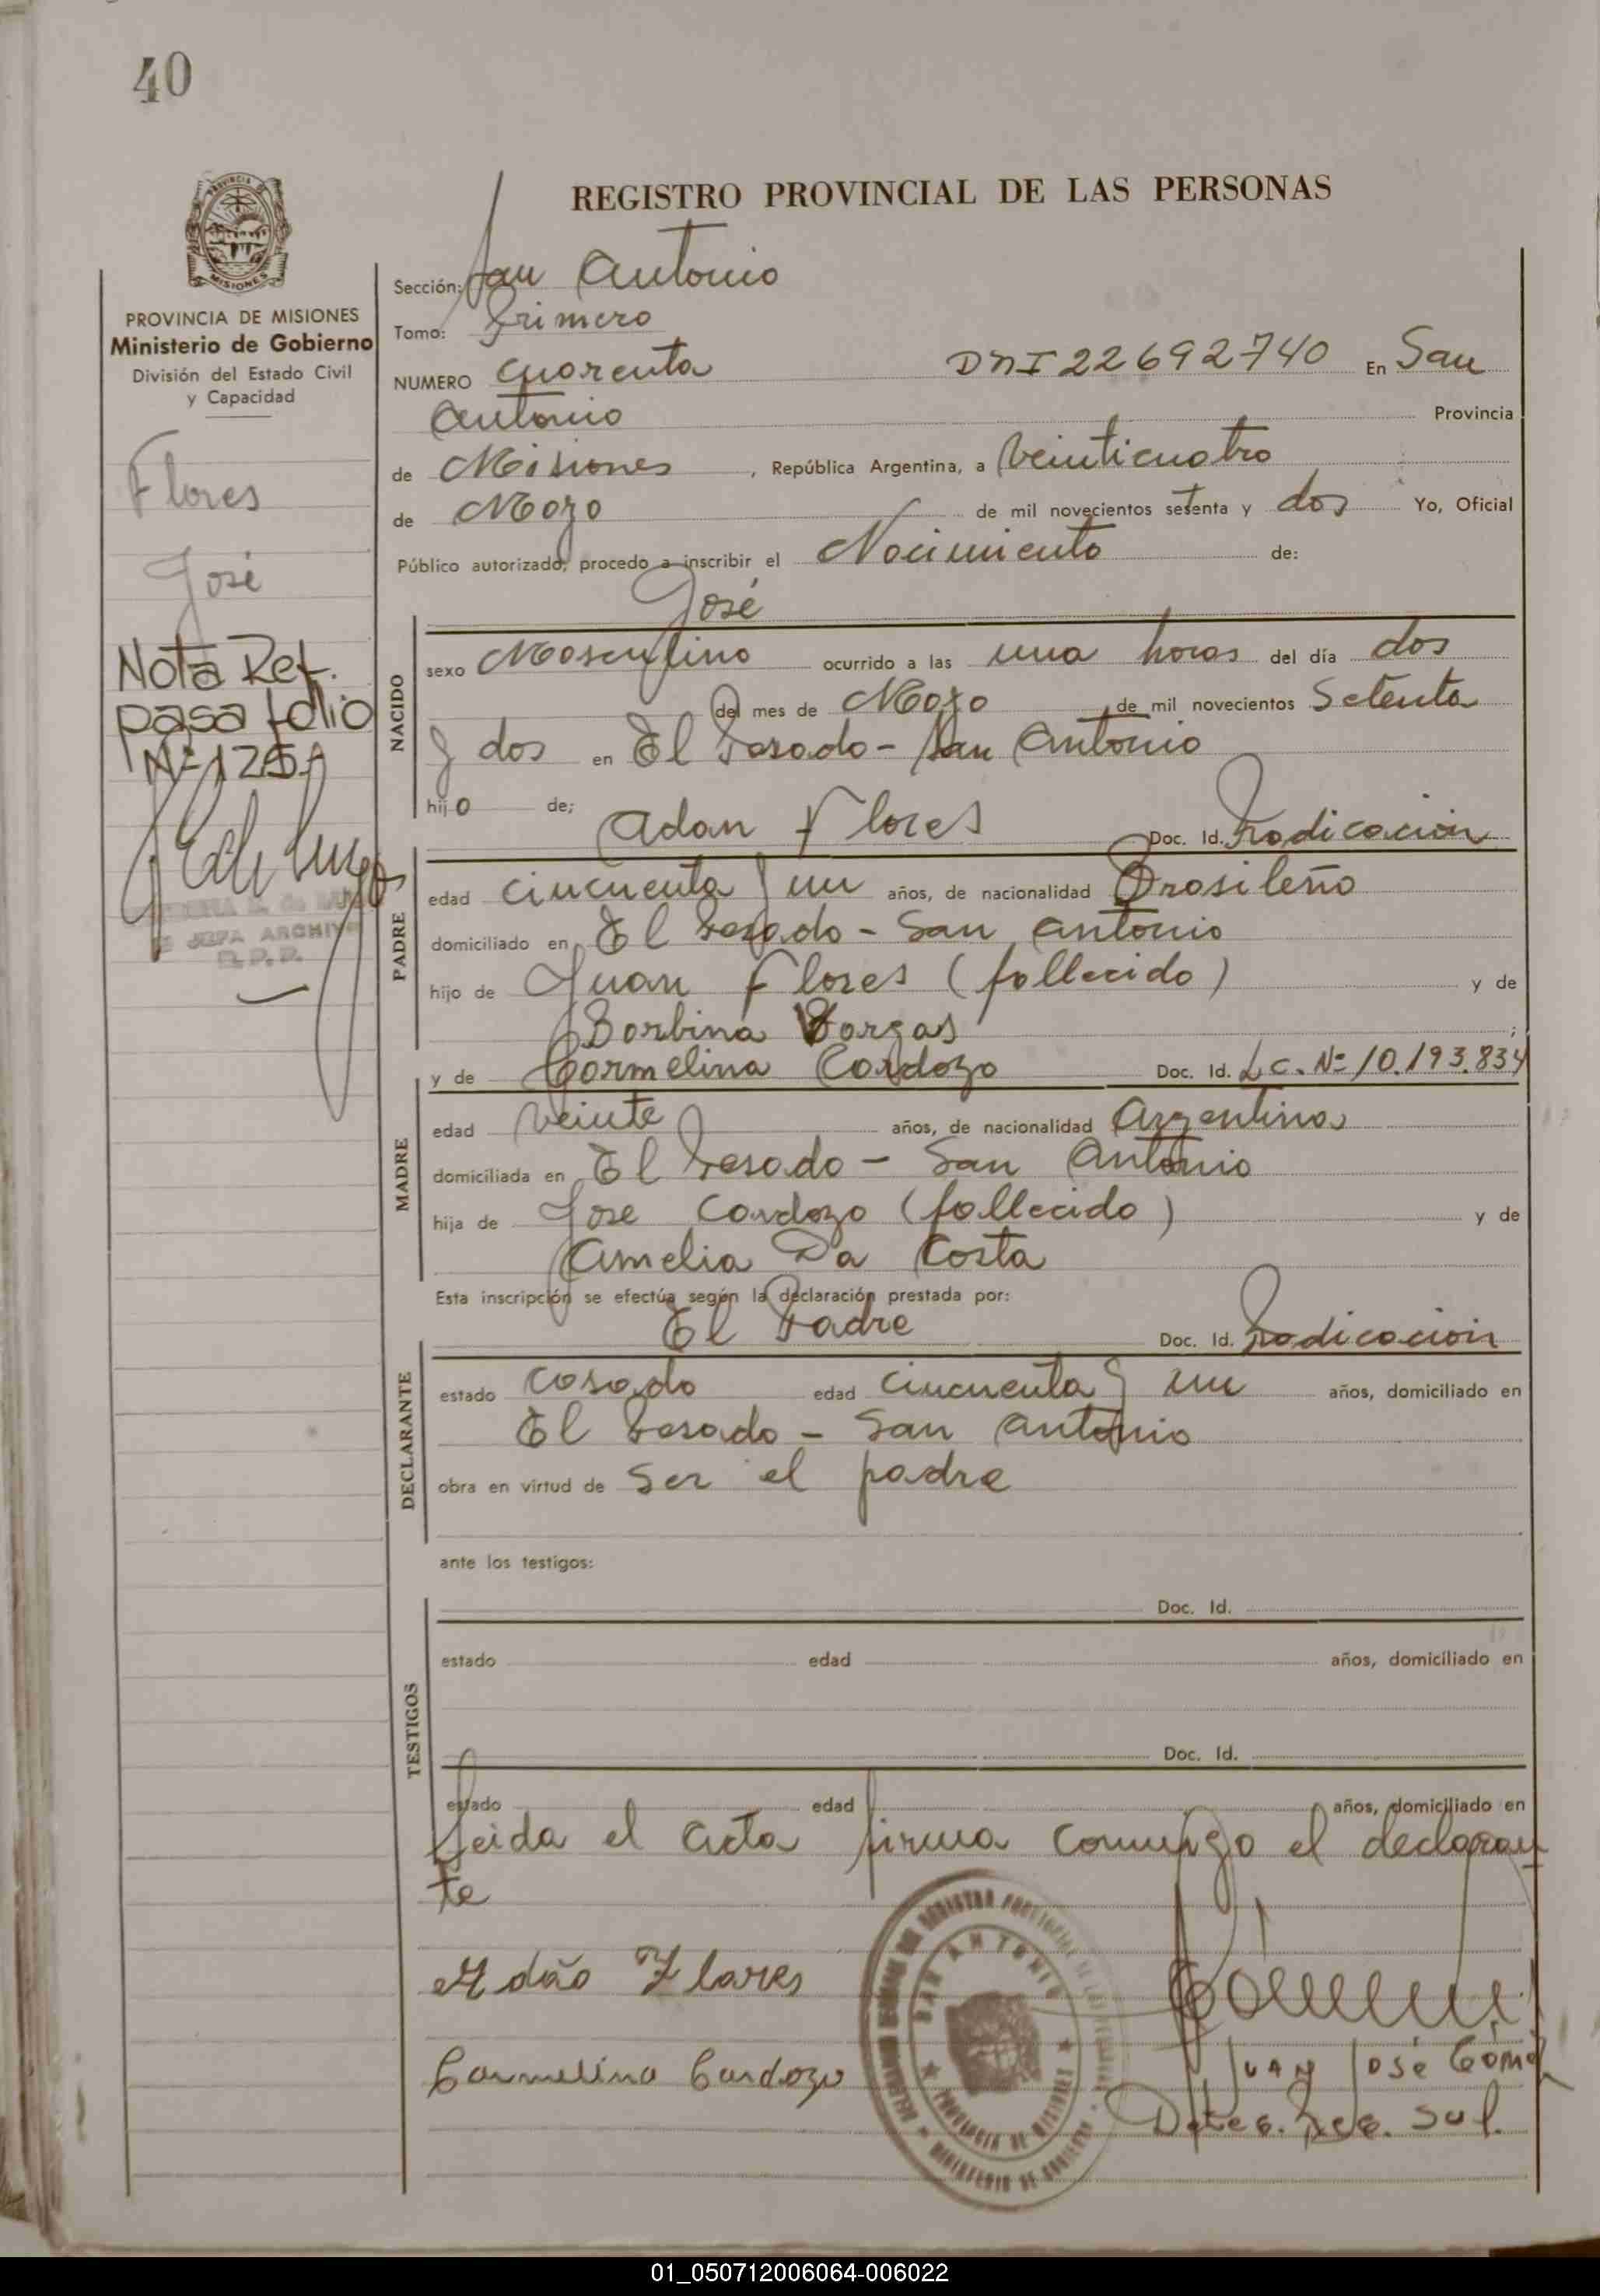 40
REGISTRO PROVINCIAL DE LAS PERSONAS
MISIONES
PROVINCIA DE MISIONES
Ministerio de Gobierno
División del Estado Civil
y Capacidad
Flores
José
Nota Ref.
pasa folio
Nº 125
JEFA ARCHIVO
R.P.P.
Sección: San Antonio
Tomo: Primero
NUMERO Cuarenta DNI 22692740 En San
Antonio Provincia
de Misiones, República Argentina, a Veinticuatro
de Mayo de mil novecientos setenta y dos Yo, Oficial
Público autorizado, procedo a inscribir el Nacimiento de:
José
NACIDO
sexo Masculino ocurrido a las una horas del día dos
del mes de Mayo de mil novecientos Setenta
y dos en El Rosado - San Antonio
hijo de; Adan Flores Doc. Id. Radicación
PADRE
edad cincuenta y un años, de nacionalidad Brasileño
domiciliado en El Rosado - San Antonio
hijo de Juan Flores (fallecido) y de
Borbina Vargas;
y de Carmelina Cardozo Doc. Id. L.C. Nº 10.193.834
MADRE
edad Veinte años, de nacionalidad Argentina
domiciliada en El Rosado - San Antonio
hija de Jose Cardozo (fallecido) y de
Amelia Da Costa
Esta inscripción se efectúa según la declaración prestada por:
El Padre Doc. Id. Radicación
DECLARANTE
estado Casado edad cincuenta y un años, domiciliado en
El Rosado - San Antonio
obra en virtud de ser el padre
ante los testigos:
Doc. Id.
TESTIGOS
estado edad años, domiciliado en
Doc. Id.
estado edad años, domiciliado en
Leida el acta firma conmigo el declaran
te
Adão Flores
Carmelina Cardozo
SAN ANTONIO
PROVINCIA DE MISIONES
MINISTERIO DE GOBIERNO
JUAN JOSÉ Gómez
01_050712006064-006022